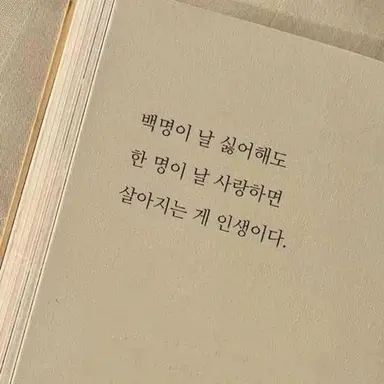 백명이 날 싫어해도
한 명이 날 사랑하면
살아지는 게 인생이다.